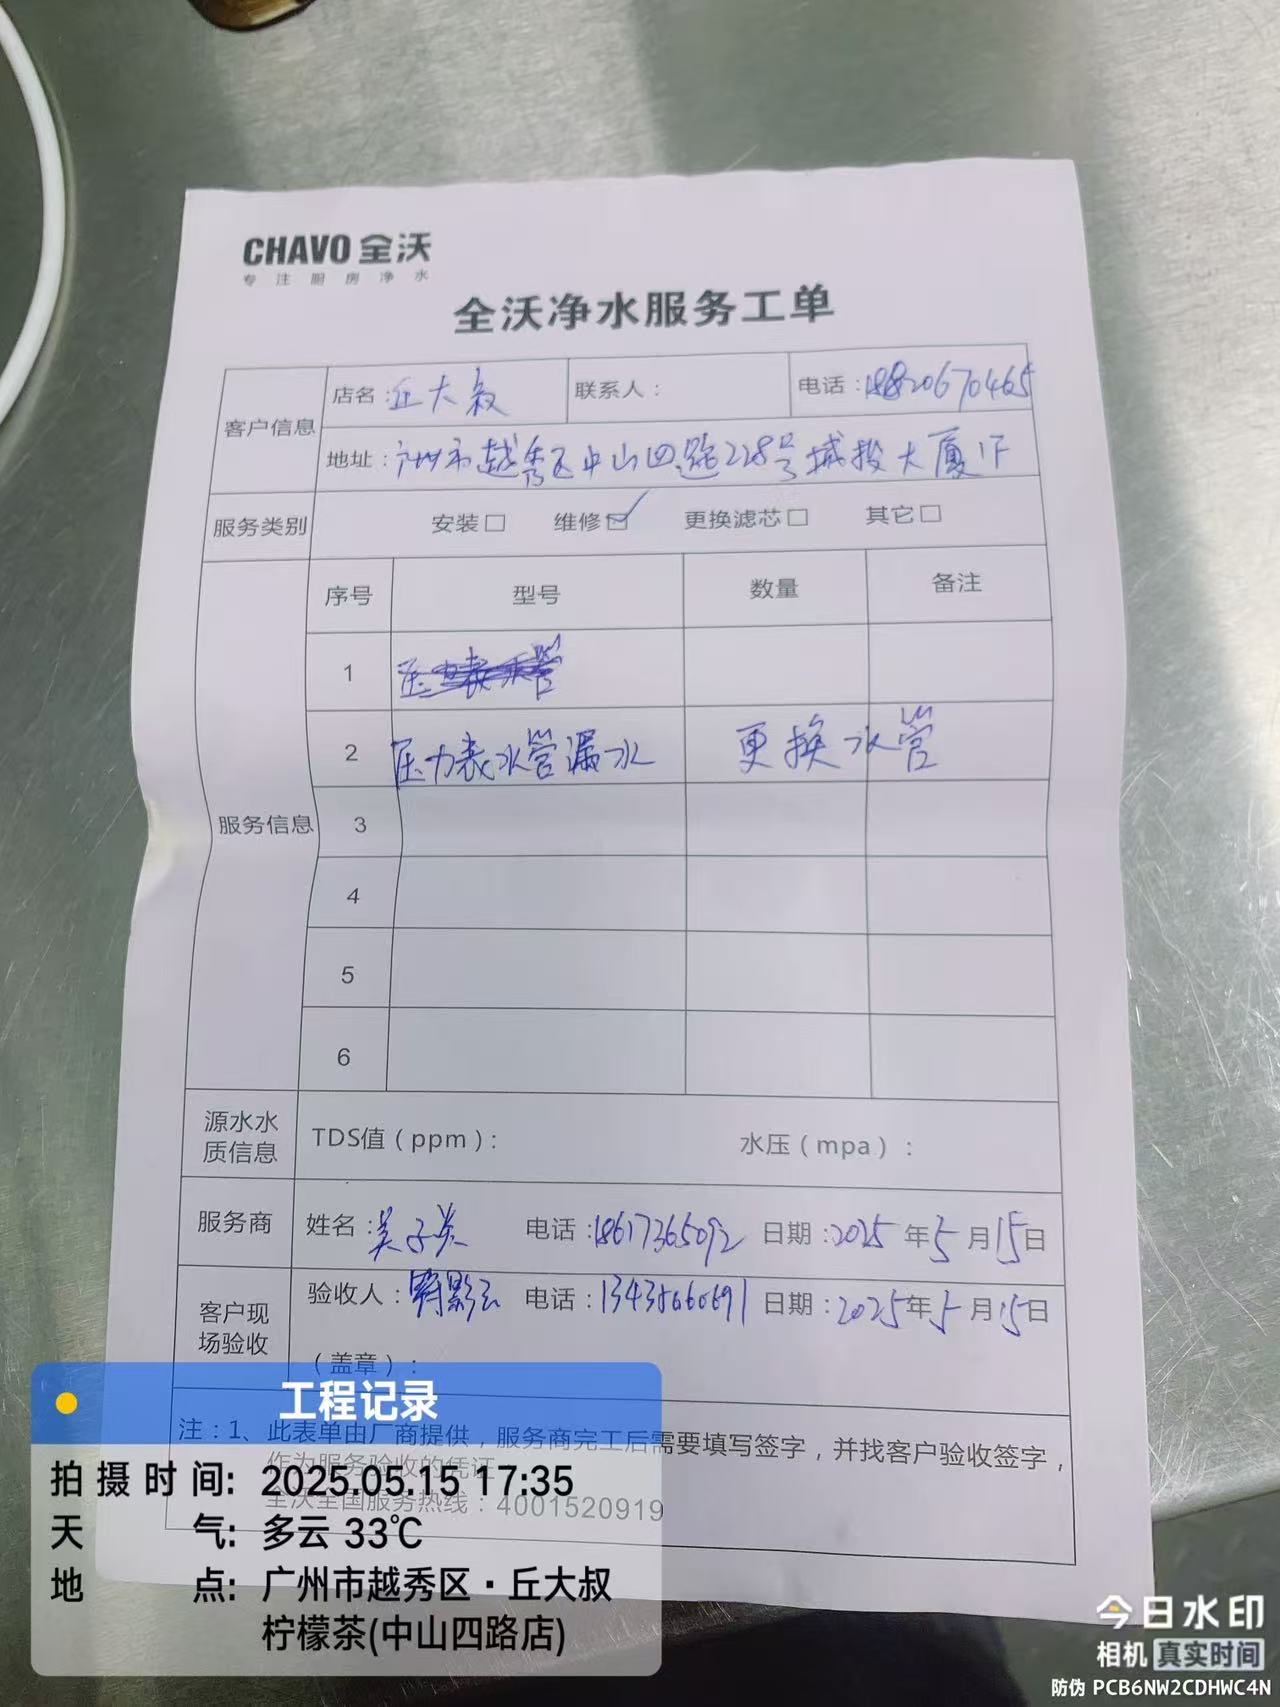 CHAVO 全沃
专注厨房净水
全沃净水服务工单
客户信息 店名：丘大叔 联系人： 电话：18820670465
地址：广州市越秀区中山四路228号城投大厦1F
服务类别 安装□ 维修☑ 更换滤芯□ 其它□
服务信息 序号 型号 数量 备注
1
2 压力表水管漏水 更换水管
3
4
5
6
源水水质信息 TDS值（ppm）： 水压（mpa）：
服务商 姓名：吴子炎 电话：18617365092 日期：2025年5月15日
客户现场验收 验收人： 电话： 日期：2025年5月15日
（盖章）：
注：1、此表单由厂商提供，服务商完工后需要填写签字，并找客户验收签字，
作为服务验收的凭证
全沃全国服务热线：4001520919
工程记录
拍摄时间: 2025.05.15 17:35
天气: 多云 33℃
地点: 广州市越秀区·丘大叔
柠檬茶(中山四路店)
今日水印
相机 真实时间
防伪 PCB6NW2CDHWC4N